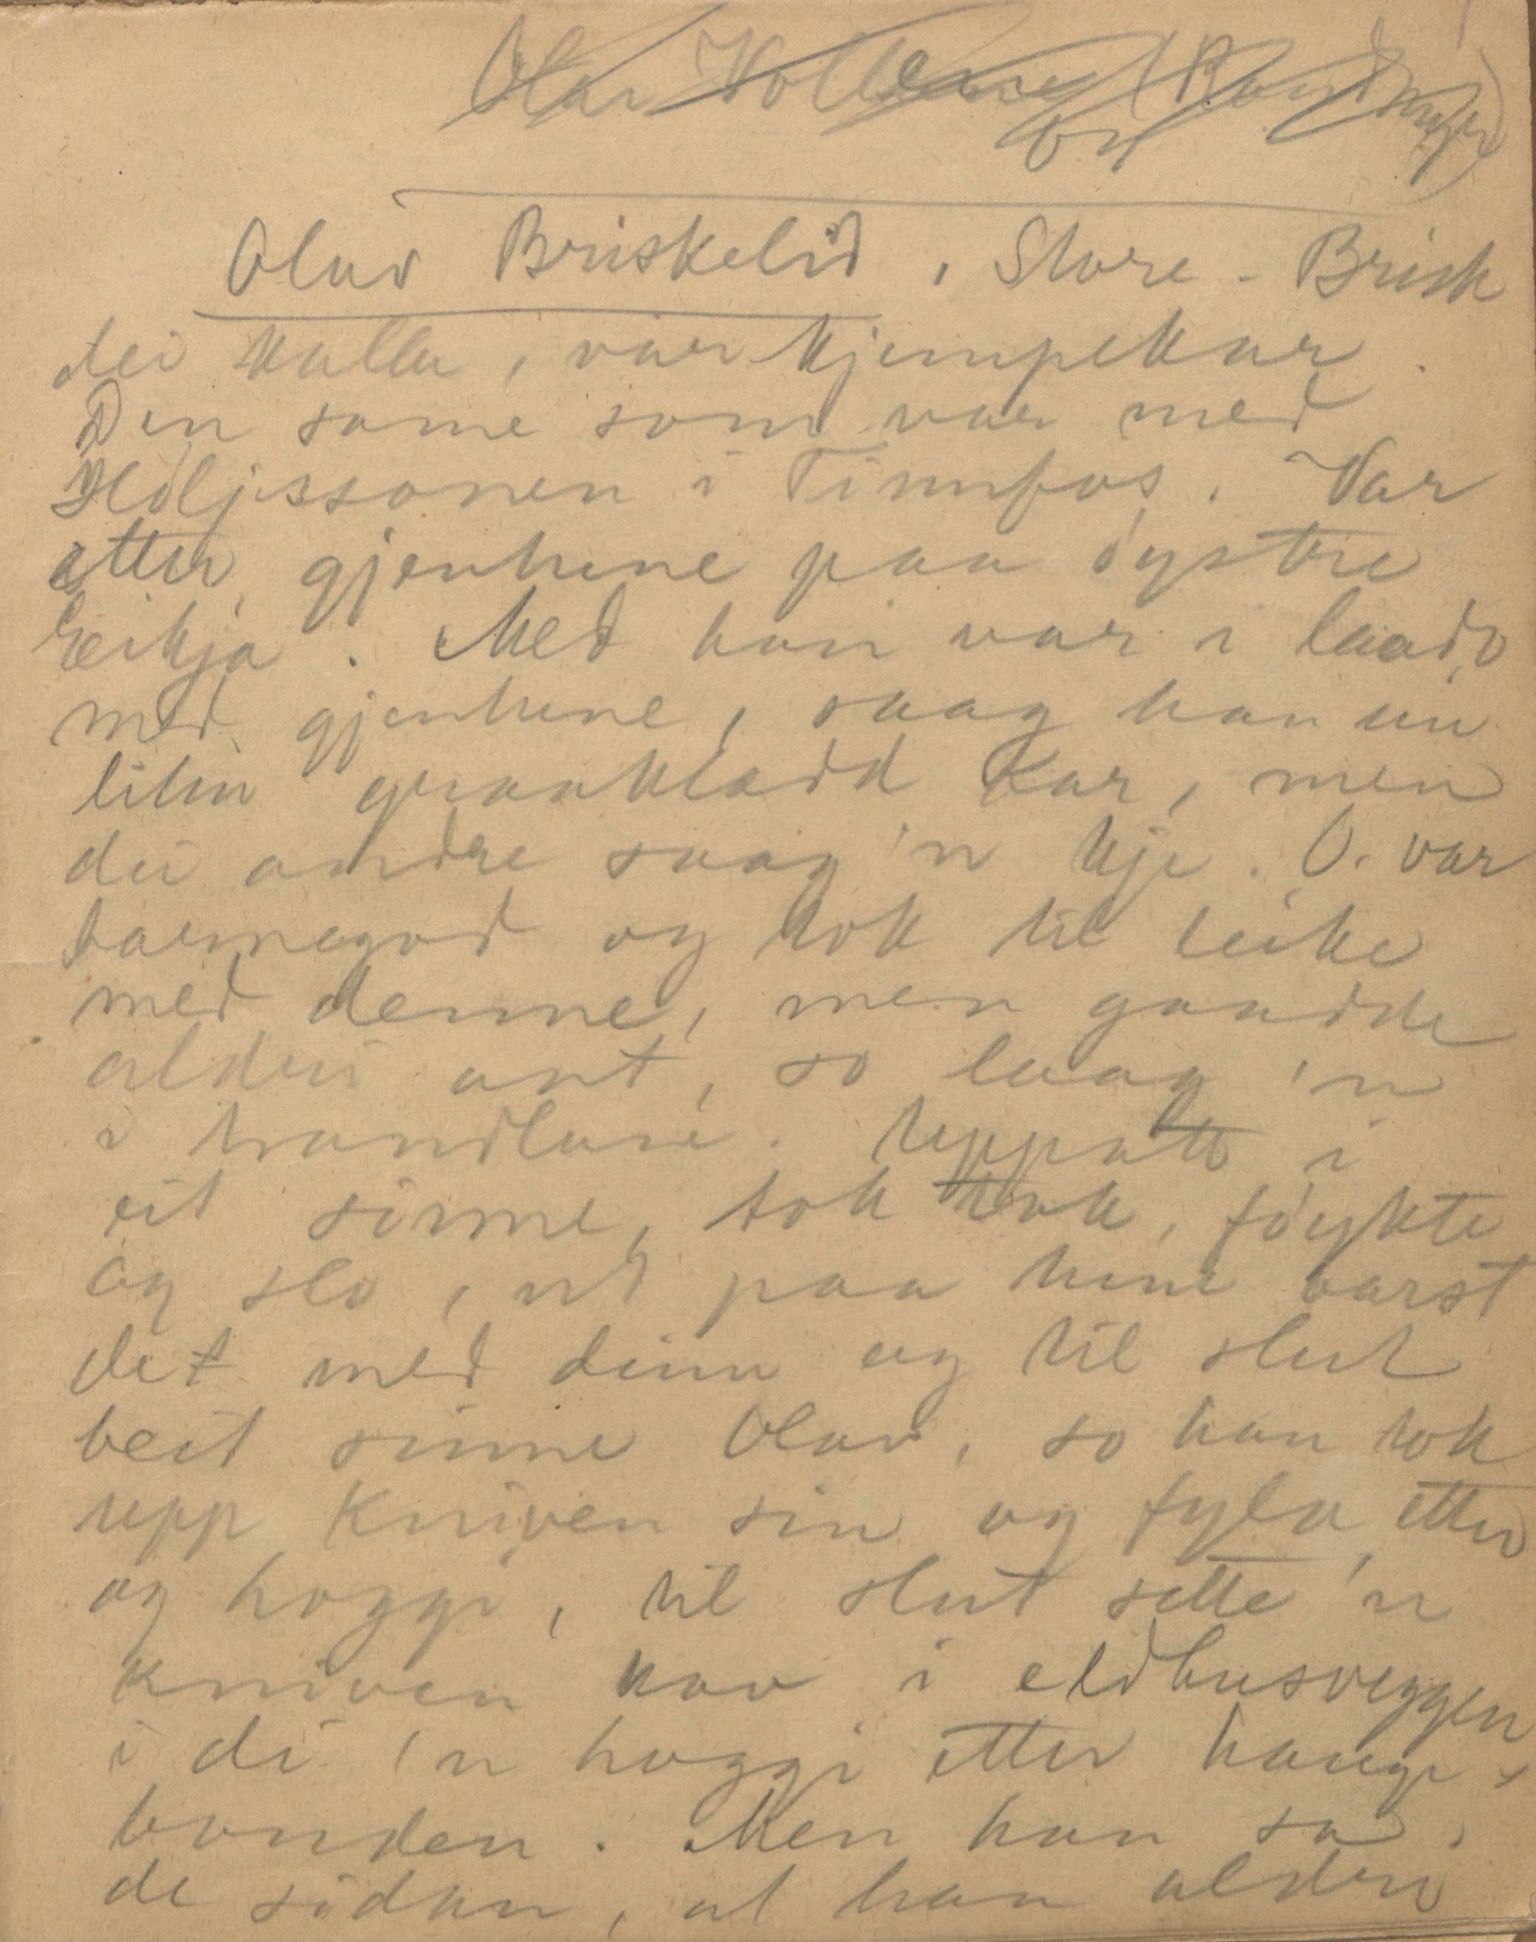 Olav Briskelid, Store-Brisk
dei kalla, var kjempekar.
Den same som var med
Höljessonen i Tinnfos. Var
etter gjentune paa öystre
Eikja. Med han var i laado
med gjentune, saag han ein
liten graaklædd kar, men
dei andre saag 'n kje. O. var
barnegod og tok til leike
med denne, men gaadde
alderi ant, so laag 'n
i handlane. Uppatt i
eit sinne, tok tok, föykte
og slo, ut paa tune barst
det med dein og til slut
beit sinne Olav, so han tok
upp kniven sin og fylu etter
og hoggi, til slut sette 'n
kniven kav i eldhusveggen
i di 'n hoggi etter hauge-
bonden. Men han sa
de sidan, at han alderi